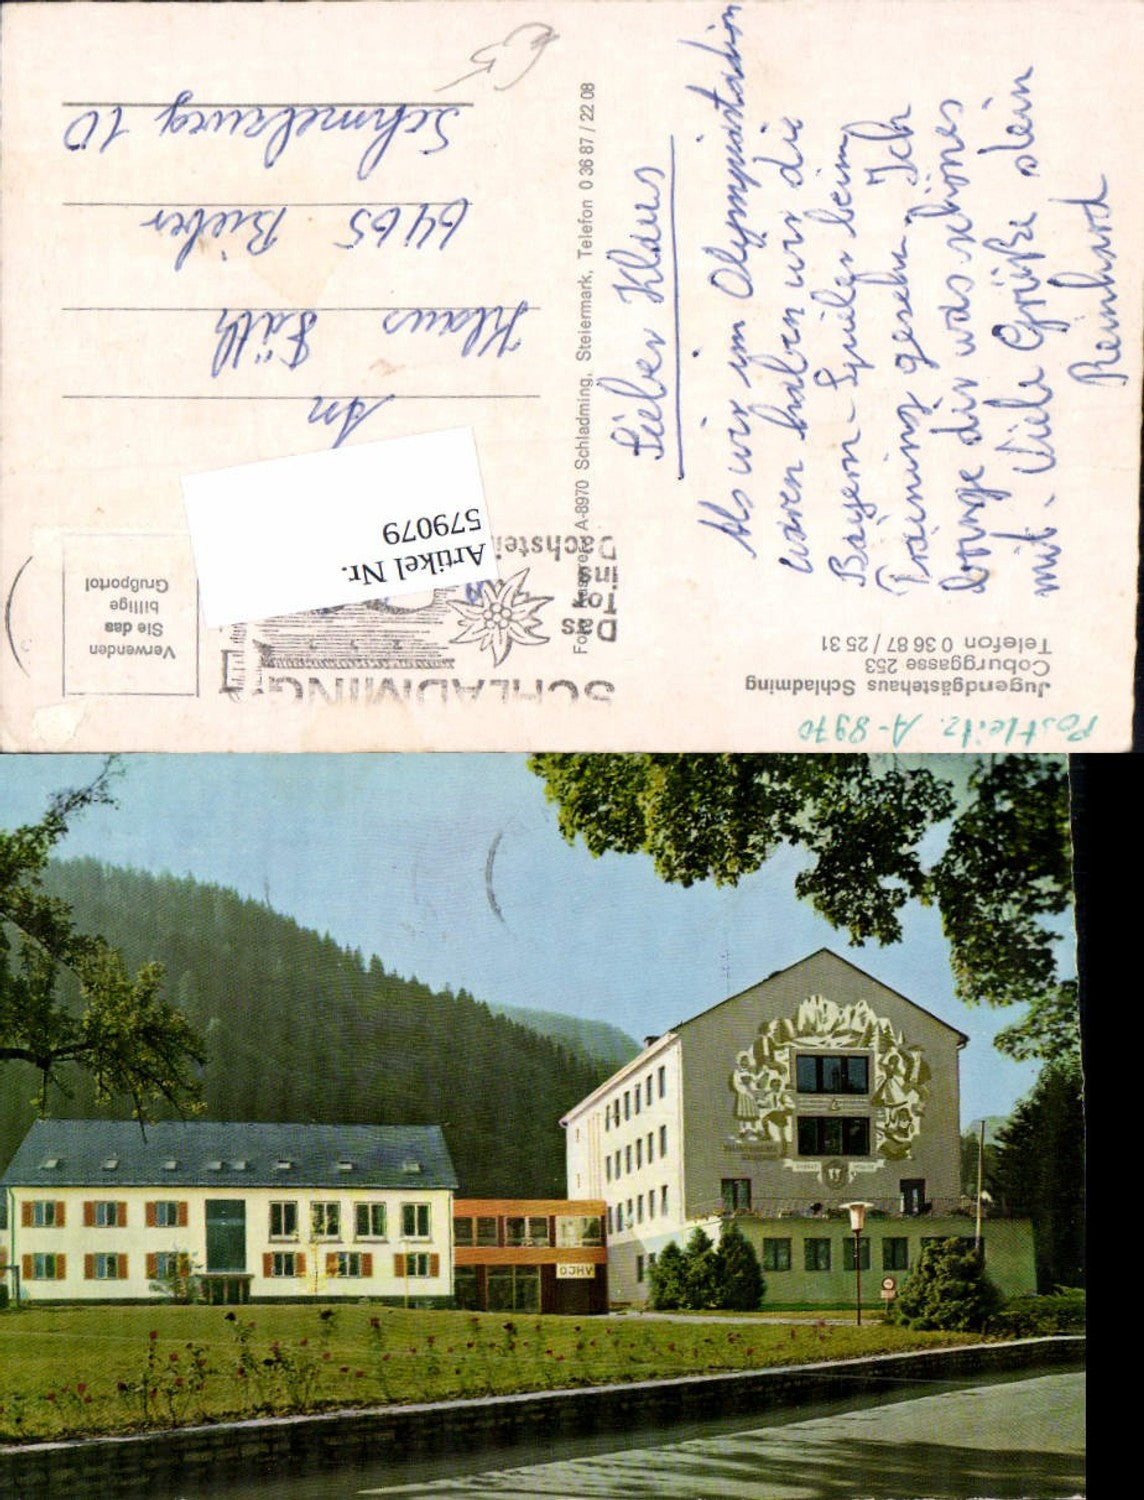 Postleitz. A-8970
Jugendgästehaus Schladming
Coburggasse 253
Telefon 0 36 87 / 25 31
Lieber Klaus
Als wir im Olympiastadion
waren haben wir die
Bayern-Spieler beim
Training gesehn. Ich
bringe dir was schönes
mit. Viele Grüße dein
Reinhard
A-8970 Schladming, Steiermark, Telefon 0 36 87 / 22 08
SCHLADMING
Das
Tor
ins
Dachstein
Verwenden
Sie das
billige
Grußporto!
Artikel Nr.
579079
An
Klaus Fäth
6465 Bieber
Schmelzweg 10
€5